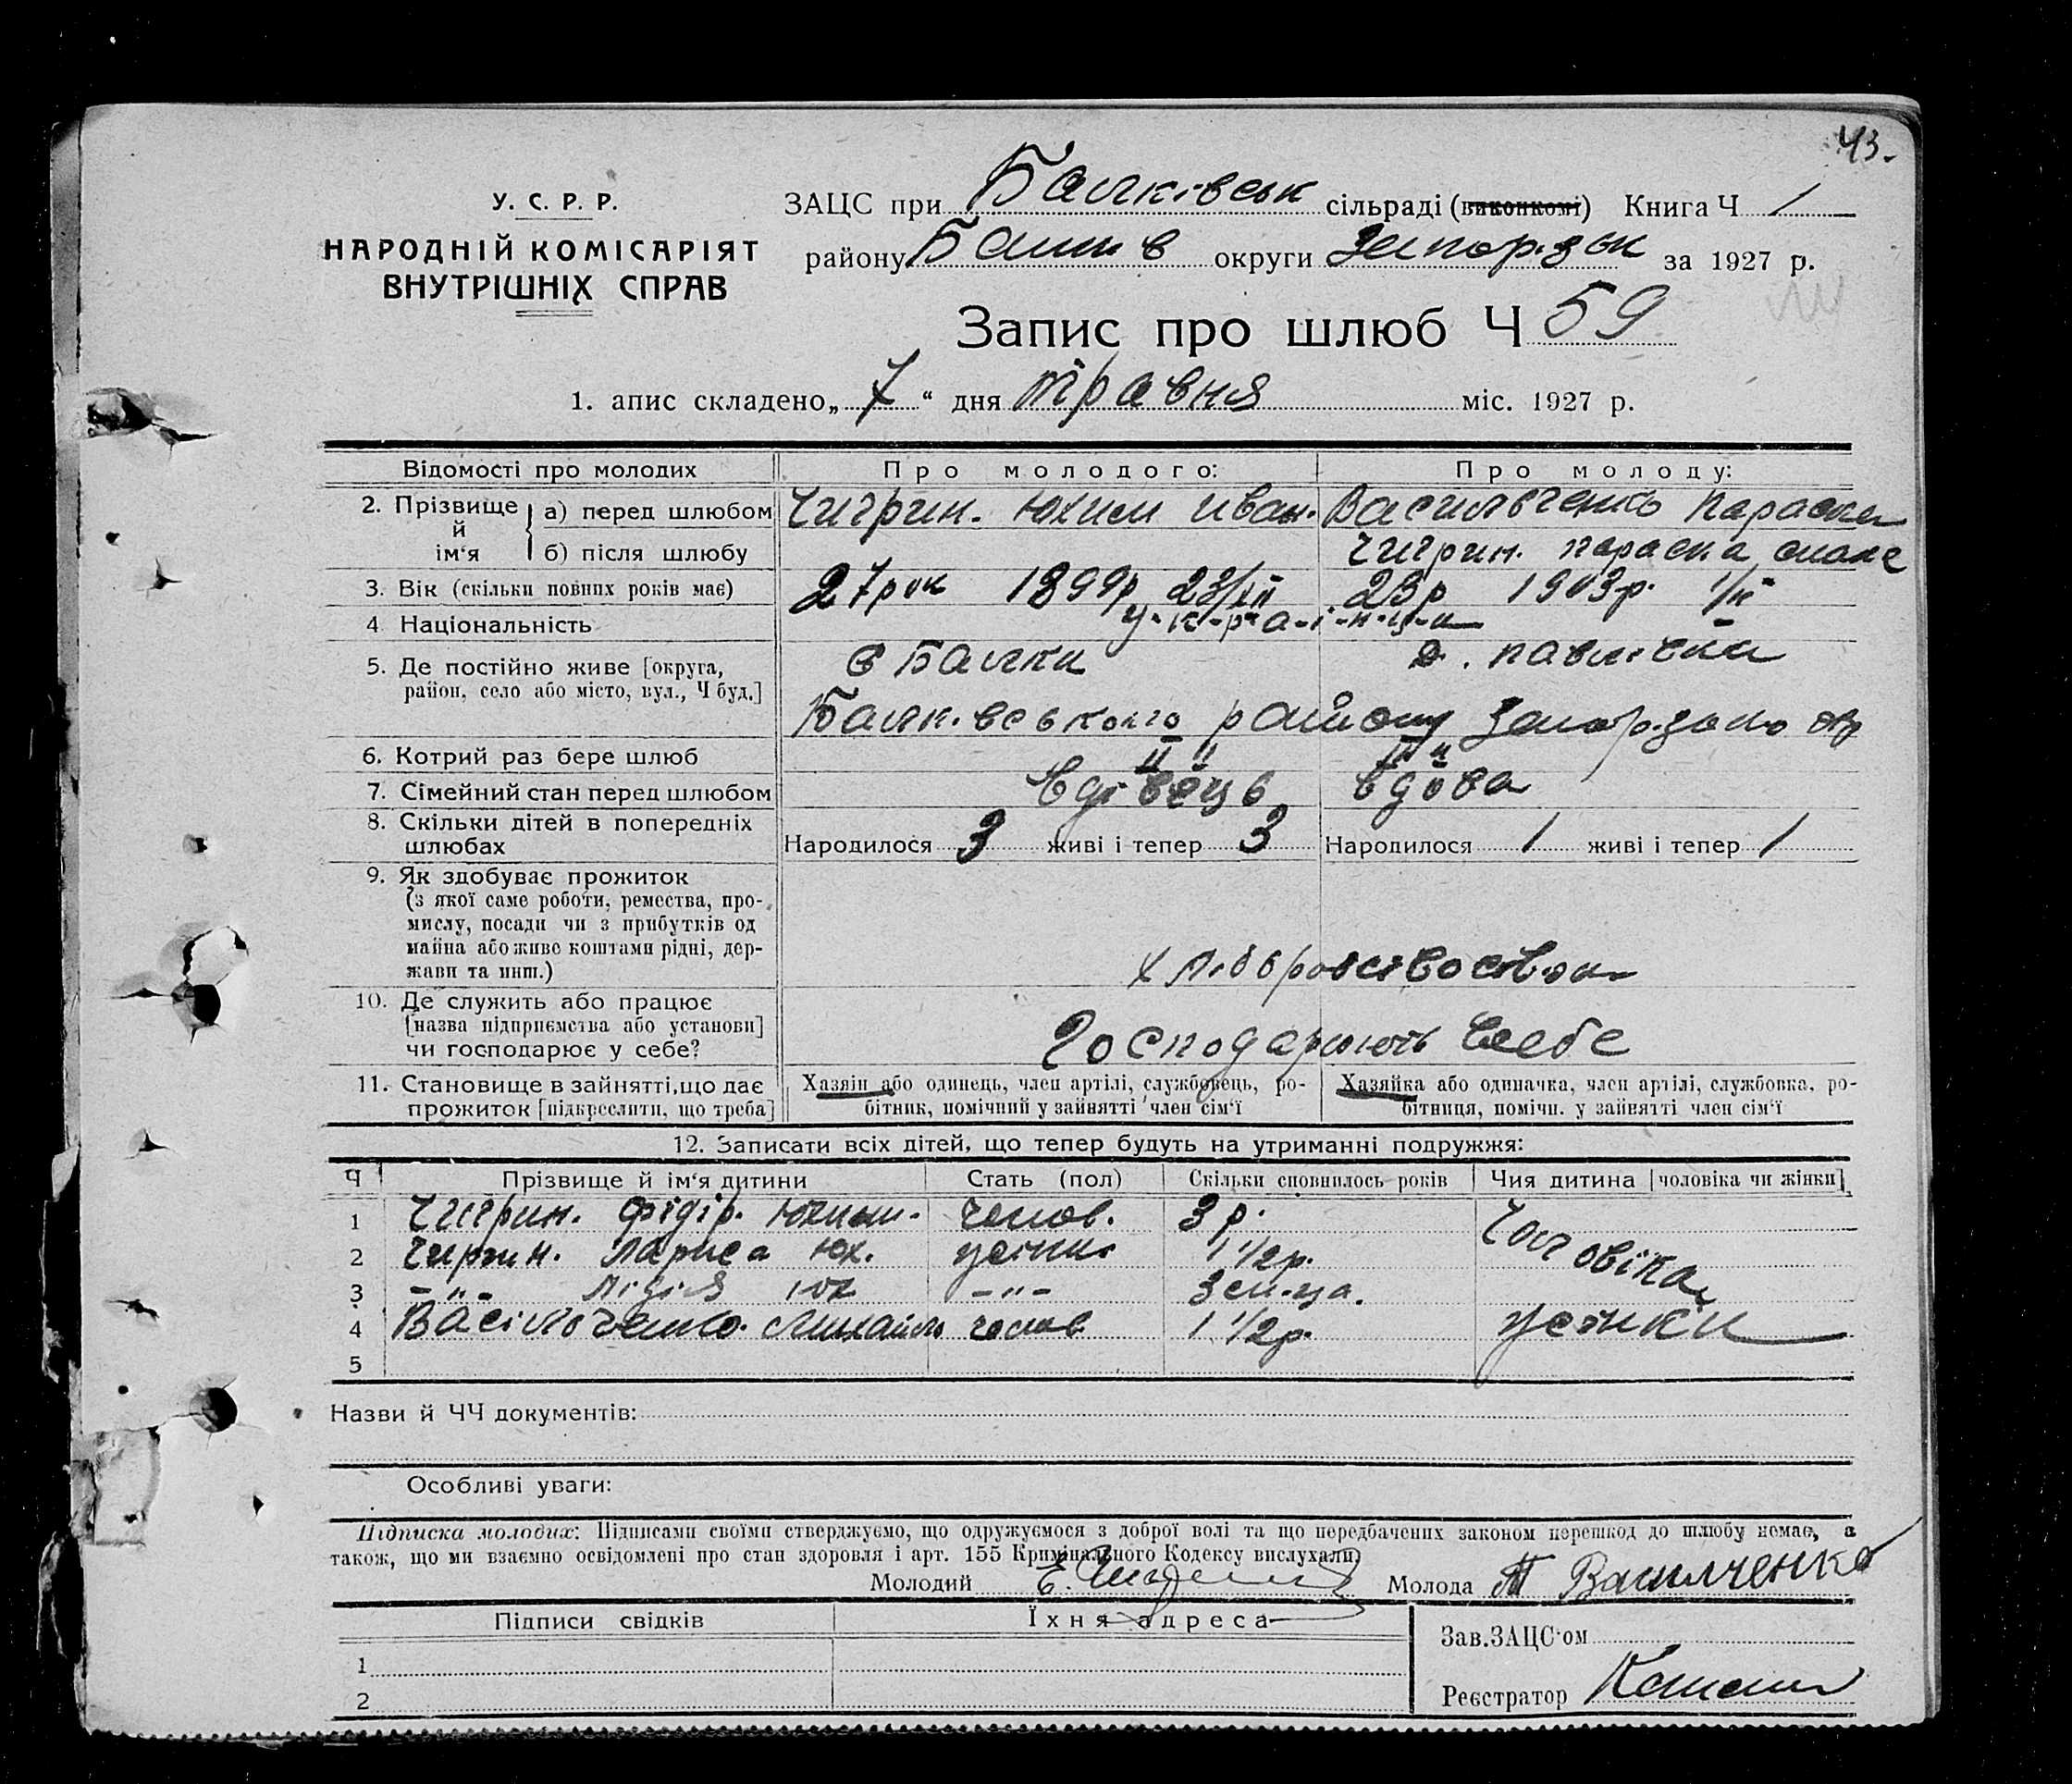 43.
У. С. Р. Р.
НАРОДНІЙ КОМІСАРІЯТ
ВНУТРІШНІХ СПРАВ
ЗАЦС при Балківськ сільраді (виконкомі) Книга Ч 1
району Балків округи Запорізьк за 1927 р.
Запис про шлюб Ч 59
1. апис складено „ 7 “ дня травня міс. 1927 р.
Відомості про молодих Про молодого: Про молоду:
2. Прізвище й ім‘я а) перед шлюбом Чигрин. Юхим Иван. Васильченко Параска
б) після шлюбу Чигрин. Параска
3. Вік (скільки повних років має) 27 рок 1899р 23/XII 23р 1903р.
4 Національність у-к-р-а-ї-н-ц-и
5. Де постійно живе [округа, район, село або місто, вул., Ч буд.] с Балки Павлівка
Балківського району Запорізько
6. Котрий раз бере шлюб II й II й
7. Сімейний стан перед шлюбом Вдівець вдова
8. Скільки дітей в попередніх шлюбах Народилося 3 живі і тепер 3 Народилося 1 живі і тепер 1
9. Як здобуває прожиток
(з якої саме роботи, ремества, про-
мислу, посади чи з прибутків од
майна або живе коштами рідні, дер-
жави та инш.)
10. Де служить або працює
[назва підприємства або установи]
чи господарює у себе? Господарюють
11. Становище в зайнятті, що дає прожиток [підкреслити, що треба]
Хазяїн або одинець, член артілі, службовець, ро-
бітник, помічний у зайнятті член сім‘ї
Хазяйка або одиначка, член артілі, службовка, ро-
бітниця, помічн. у зайнятті член сім‘ї
12. Записати всіх дітей, що тепер будуть на утриманні подружжя:
Ч Прізвище й ім‘я дитини Стать (пол) Скільки сповнилось років Чия дитина [чоловіка чи жінки]
1 Чигрин. Фідір. Юхим. чолов. 3 р. Чоловіка
2 Чигрин. Лариса Юх. жіноч 1 1/2 р.
3 -"- Лідія Юх -"-
4 Васільченко. Михайло чолов 1 1/2 р. жінки
5
Назви й ЧЧ документів:
Особливі уваги:
Підписка молодих: Підписами своїми стверджуємо, що одружуємося з доброї волі та що передбачених законом перешкод до шлюбу немає, а
також, що ми взаємно освідомлені про стан здоровля і арт. 155 Кримінального Кодексу вислухали
Молодий Молода П Василченко
Підписи свідків Їхня адреса
1
2
Зав. ЗАЦС‘ом
Реєстратор